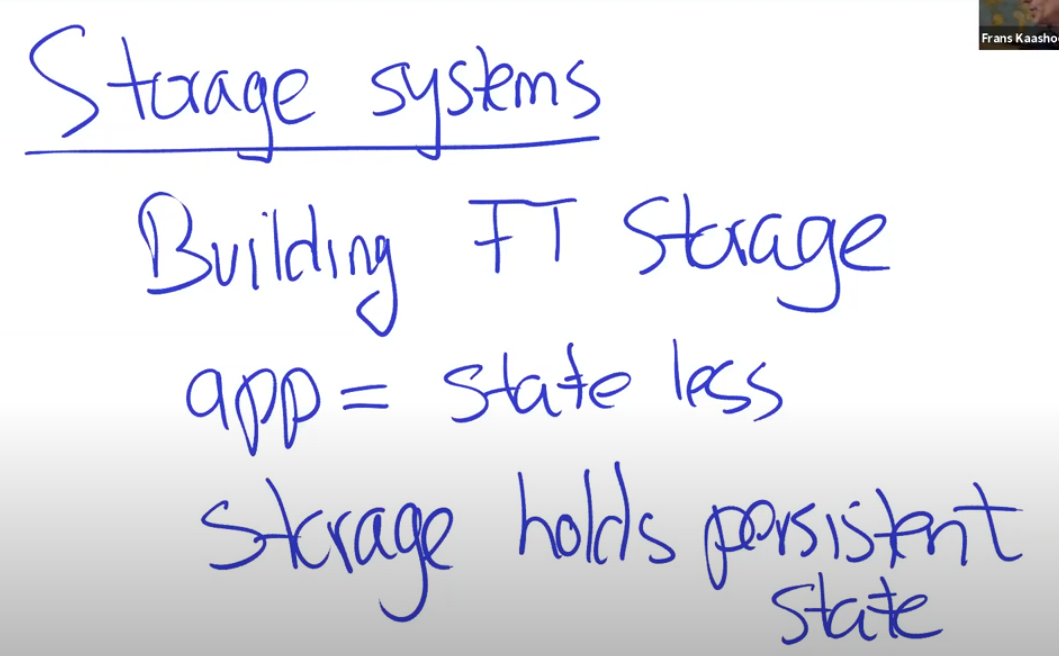 Frans Kaasho
Storage systems
Building FT Storage
app = state less
storage holds persistent
state